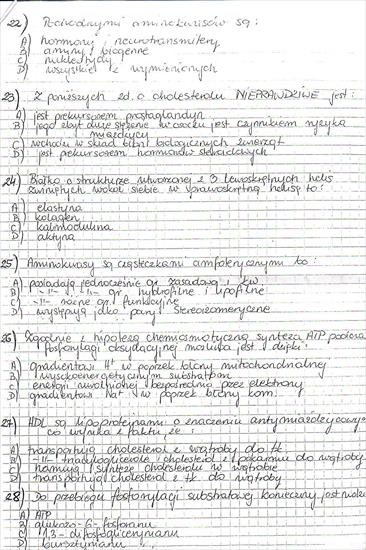 22) Pochodnymi aminokwasów są:
A) hormony, neurotransmitery
B) aminy biogenne
C) nukleotydy
D) wszystkie z wymienionych
23) Z poniższych zd. o cholesterolu NIEPRAWDZIWE jest:
A) jest prekursorem prostaglandyn
B) jego zbyt duże stężenie w osoczu jest czynnikiem ryzyka
miażdżycy
C) wchodzi w skład błon biologicznych zwierząt
D) jest prekursorem hormonów steroidowych
24) Białko o strukturze utworzonej z 3 lewoskrętnych helis
zwiniętych wokół siebie w prawoskrętną helisę to:
A) elastyna
B) kolagen
C) kalmodulina
D) aktyna
25) Aminokwasy są cząsteczkami amfoterycznymi bo:
A) posiadają jednocześnie gr. zasadową i kw.
B) -||- -||- gr. hydrofilne i lipofilne
C) -||- różne gr. funkcyjne
D) występują jako pary stereoizomeryczne
26) Zgodnie z hipotezą chemiosmotyczną synteza ATP podczas
fosforylacji oksydacyjnej możliwa jest dzięki:
A) gradientowi H⁺ w poprzek błony mitochondrialnej
B) wysokoenergetycznym substratom
C) energii uwolnionej bezpośrednio przez elektrony
D) gradientowi Na⁺ w poprzek błony kom.
27) HDL są lipoproteinami o znaczeniu antymiażdżycowym
co wynika z faktu, że:
A) transportują cholesterol z wątroby do tk.
B) -||- triacyloglicerole i cholesterol z pokarmu do wątroby
C) hamują syntezę cholesterolu w wątrobie
D) transportują cholesterol z tk. do wątroby
28) Do przebiegu fosforylacji substratowej konieczny jest
A) ATP
B) glukozo-6-fosforanu
C) 1,3-difosfoglicerynianu
D) bursztynianu